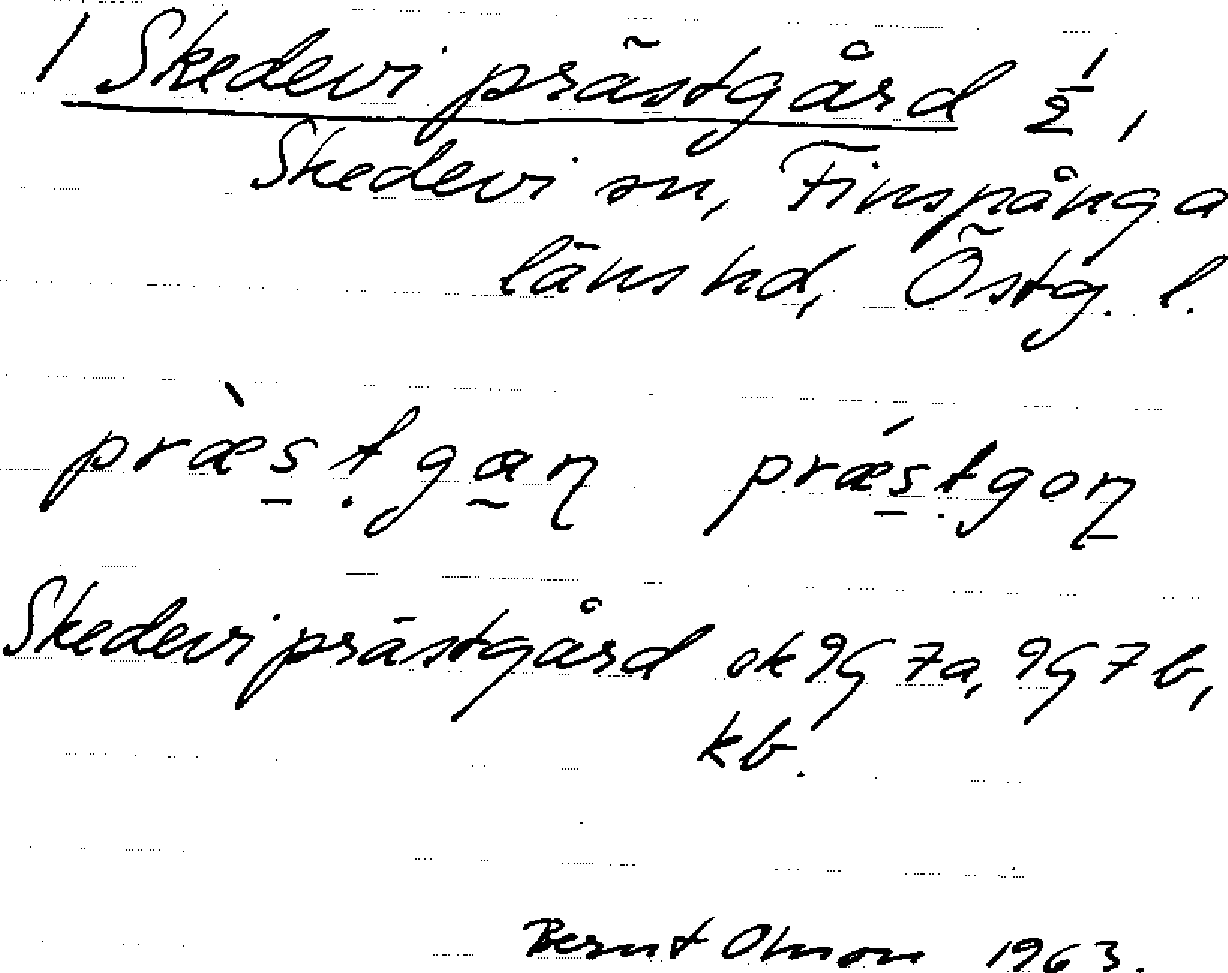 1 Skedevi prästgård 1/2,
Skedevi sn, Finspånga
läns hd, Östg. l.
præ̀s̲ṭga̰ɳ præ̲śṭgoɳ
Skedevi prästgård ek 9G 7a, 9G 7b,
kb.
Bernt Olsson 1963.